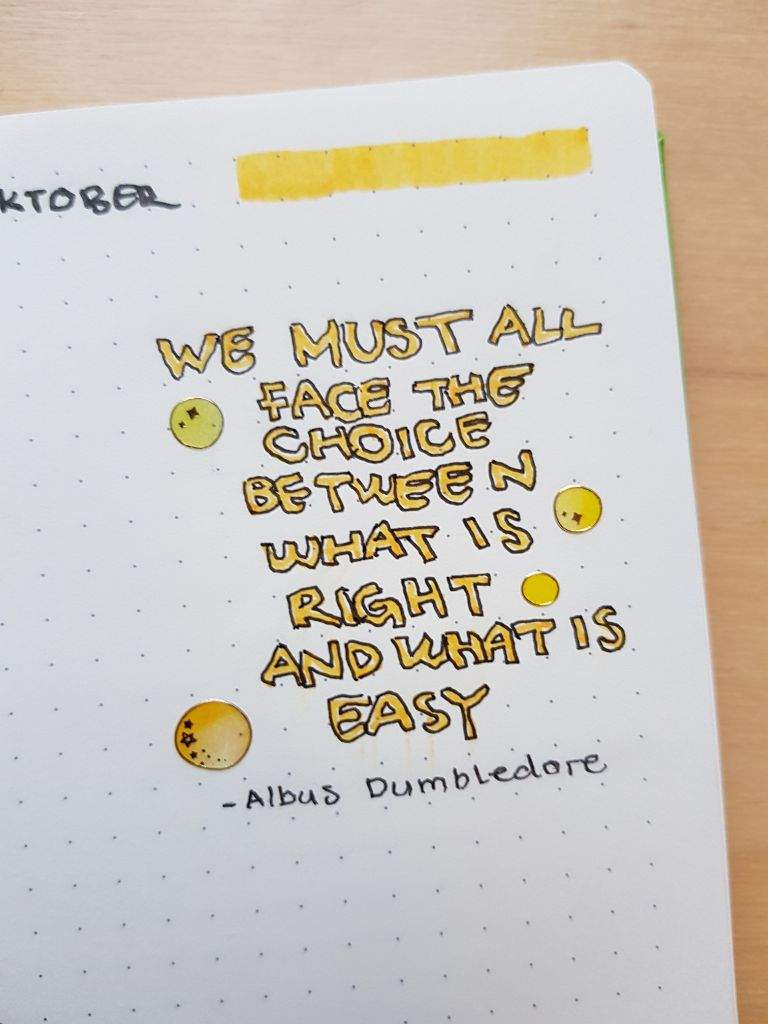 KTOBER
WE MUST ALL
FACE THE
CHOICE
BETWEEN
WHAT IS
RIGHT
AND WHAT IS
EASY
-Albus Dumbledore